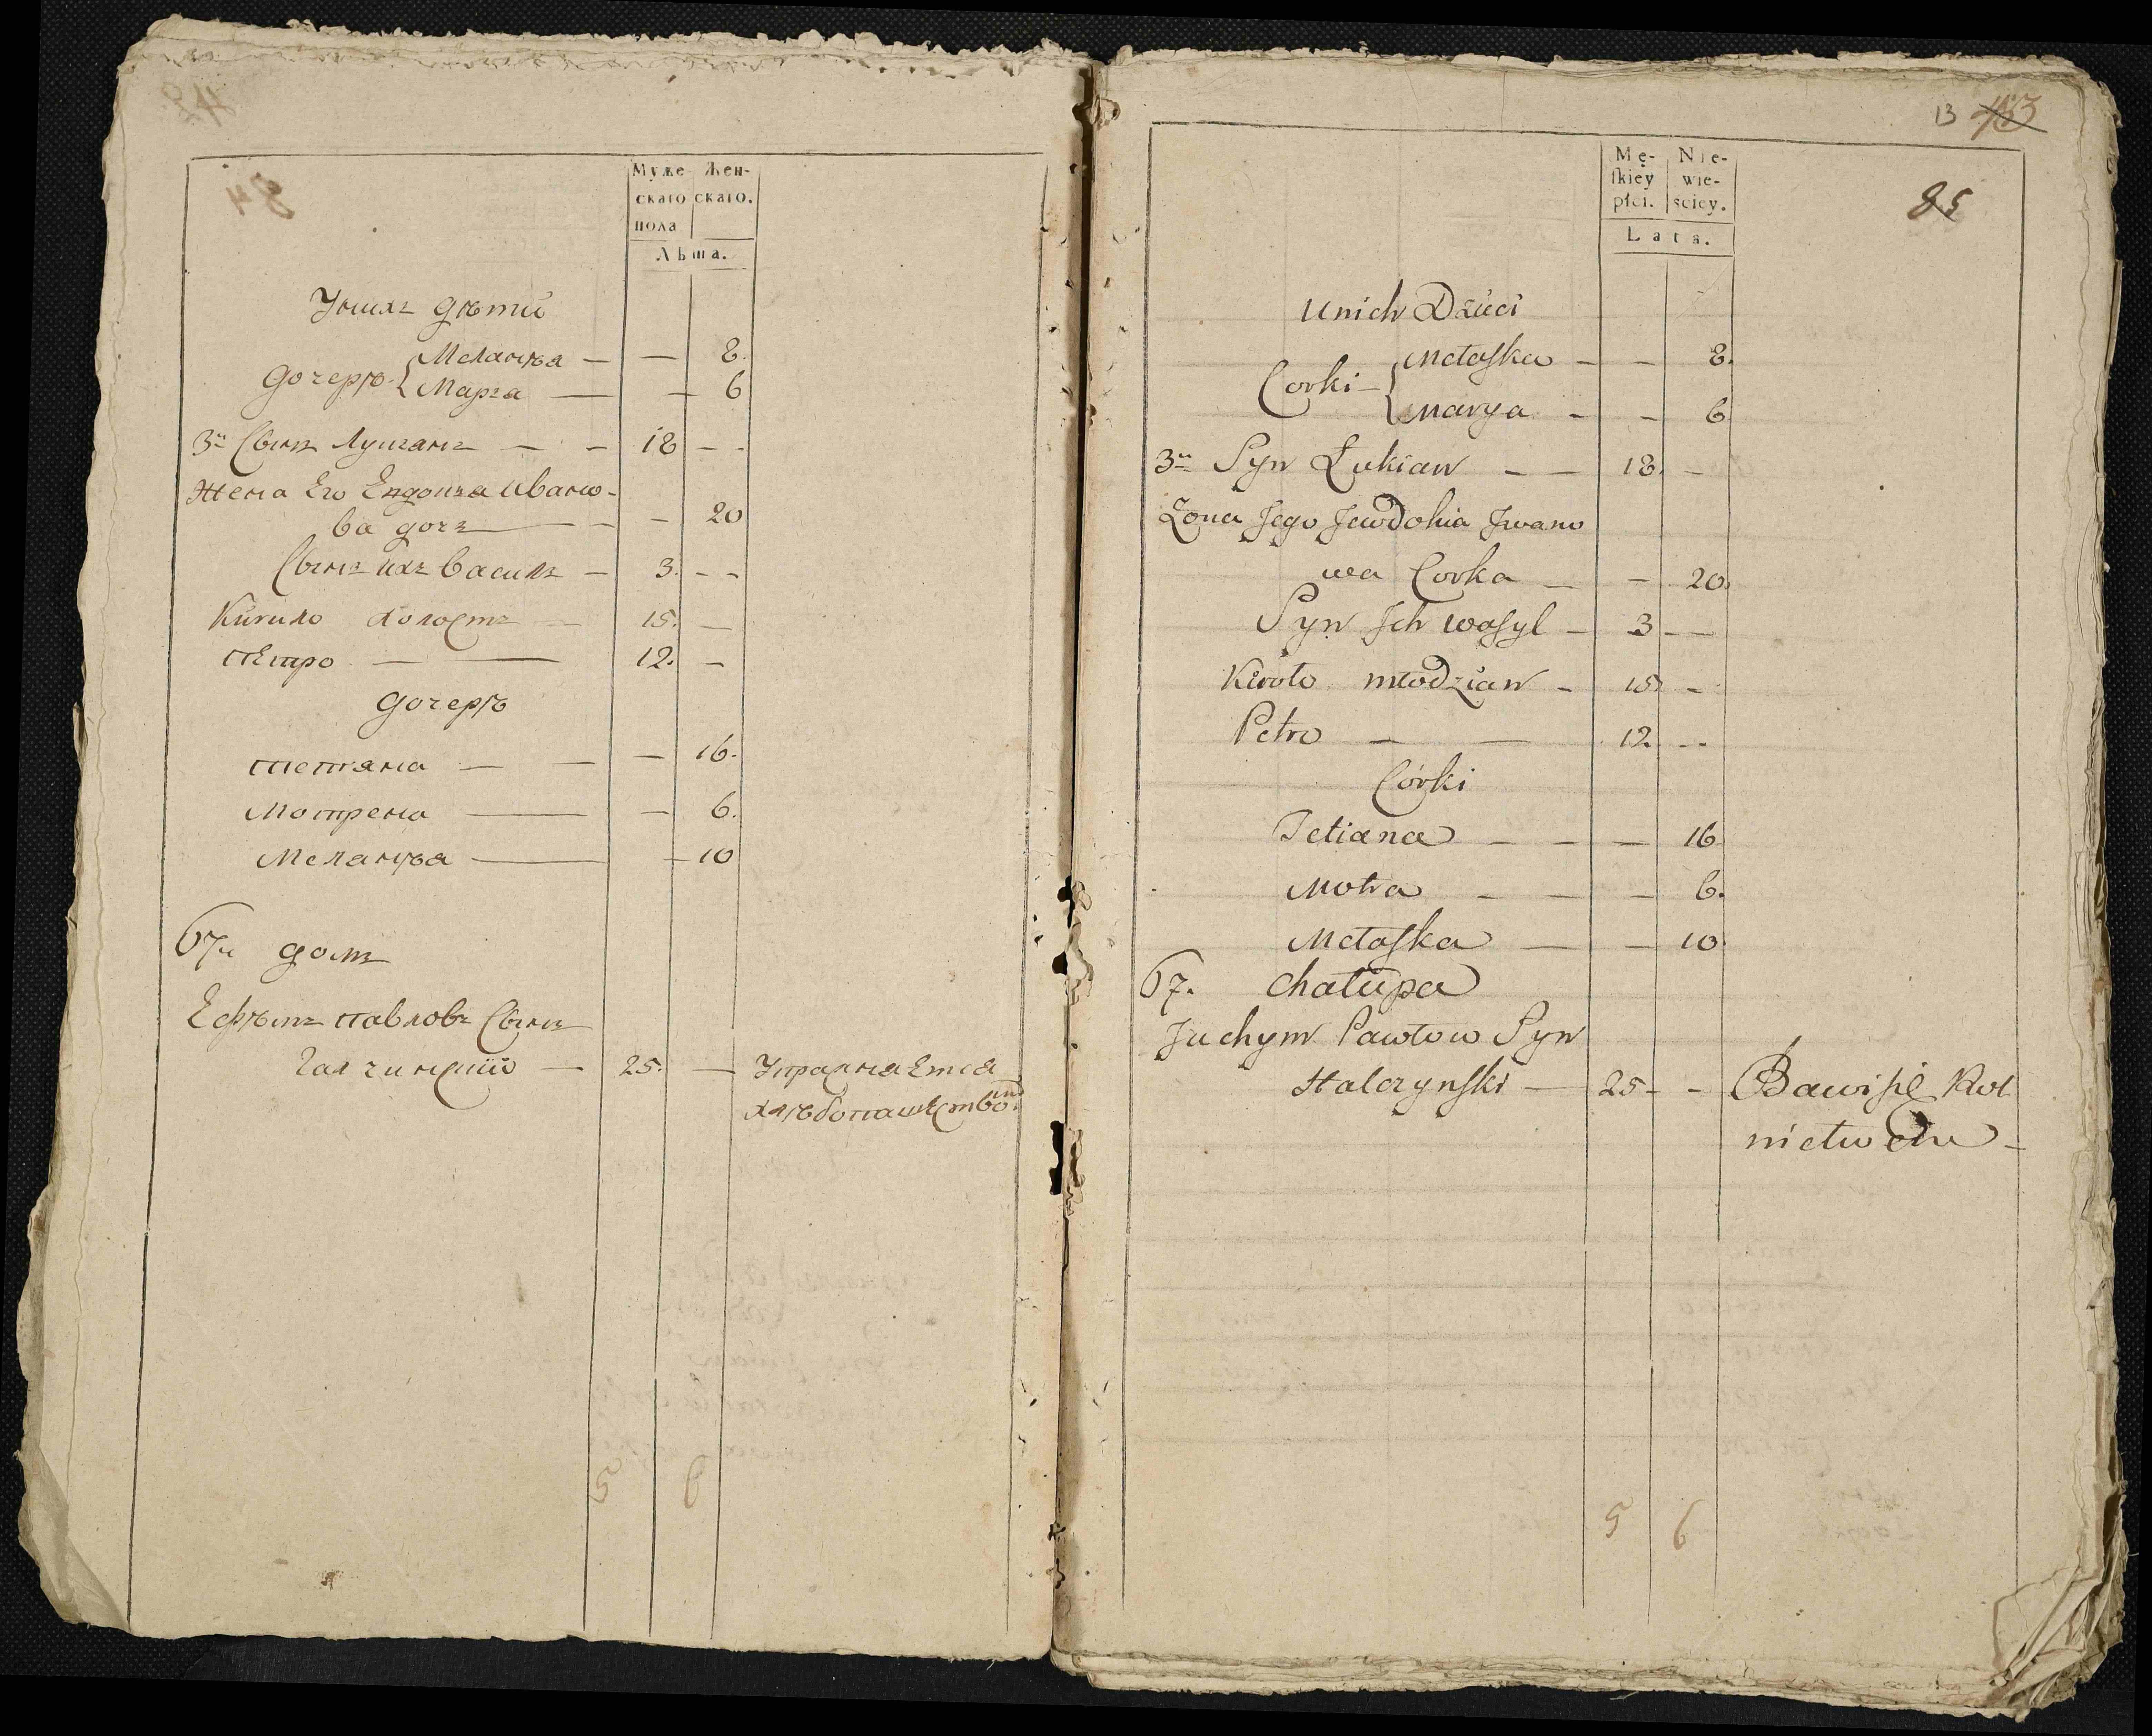 Муже- Жен-
скаго скаго.
пола
Лѣта.
Унихъ дѣтй
Меланѣя — — 8.
Дочерѣ
Маръа — — 6
3й Сынъ Лукианъ — — 18 — -
Жена Его Евдокѣа Ивано-
ва дочъ — — 20
Сынъ ихъ Василъ — 3. - -
Кирило холостъ — 15. —
пЕтро — — 12. —
Дочерѣ
тетяна — — — 16.
Мотрена — — 6.
Меланѣя — — 10
67й домъ
Ефѣмъ павловъ Сынъ
Галчинский — 25. — УпражняЕтся
хлѣбопашЕством
5 6
13 43
85
Mę- Nie-
skiey wie-
płci. sciey.
Lata.
Unich Dzieci
Małaska — — 8.
Corki
Marya - - 6
3ci Syn Łukian — — 18. —
Zona Jego Jewdokia Jwano
wa Corka — — 20.
Syn Jch Wasyl — 3 — —
Kiryło młodzian — 15. —
Petro — — 12. - -
Córki
Tetiana — — — 16
Motra — — — 6.
Małaska — — 10.
67. Chałupa
Juchym Pawłow Syn
Halczynski — 25 - - Bawi się Rol
nictwem -
5 6